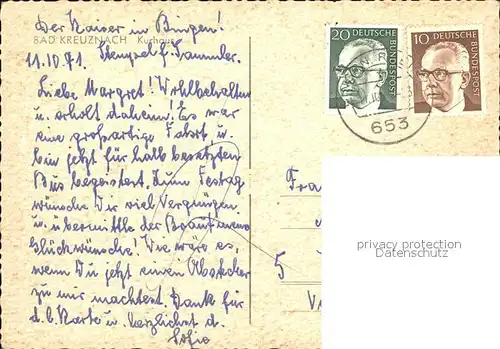 Der Kaiser in Bingen!
BAD KREUZNACH Kurhaus
11.10.71. Stempel f. Sammler.
Liebe Margret! Wohlbehalten
u. erholt daheim! Es war
eine großartige Fahrt u.
bin jetzt für halb besetzten
Bus begeistert. Zum Festag
wünsche Dir viel Vergnügen
u. übermittle der
Glückwünsche! Wie wäre es,
wenn Du jetzt einen Abstecher
zu mir machtest. Dank für
d. l. Karte u. herzlichst d.
Sofie
20 DEUTSCHE BUNDESPOST
10 DEUTSCHE BUNDESPOST
653
Fra
5
privacy protection
Datenschutz